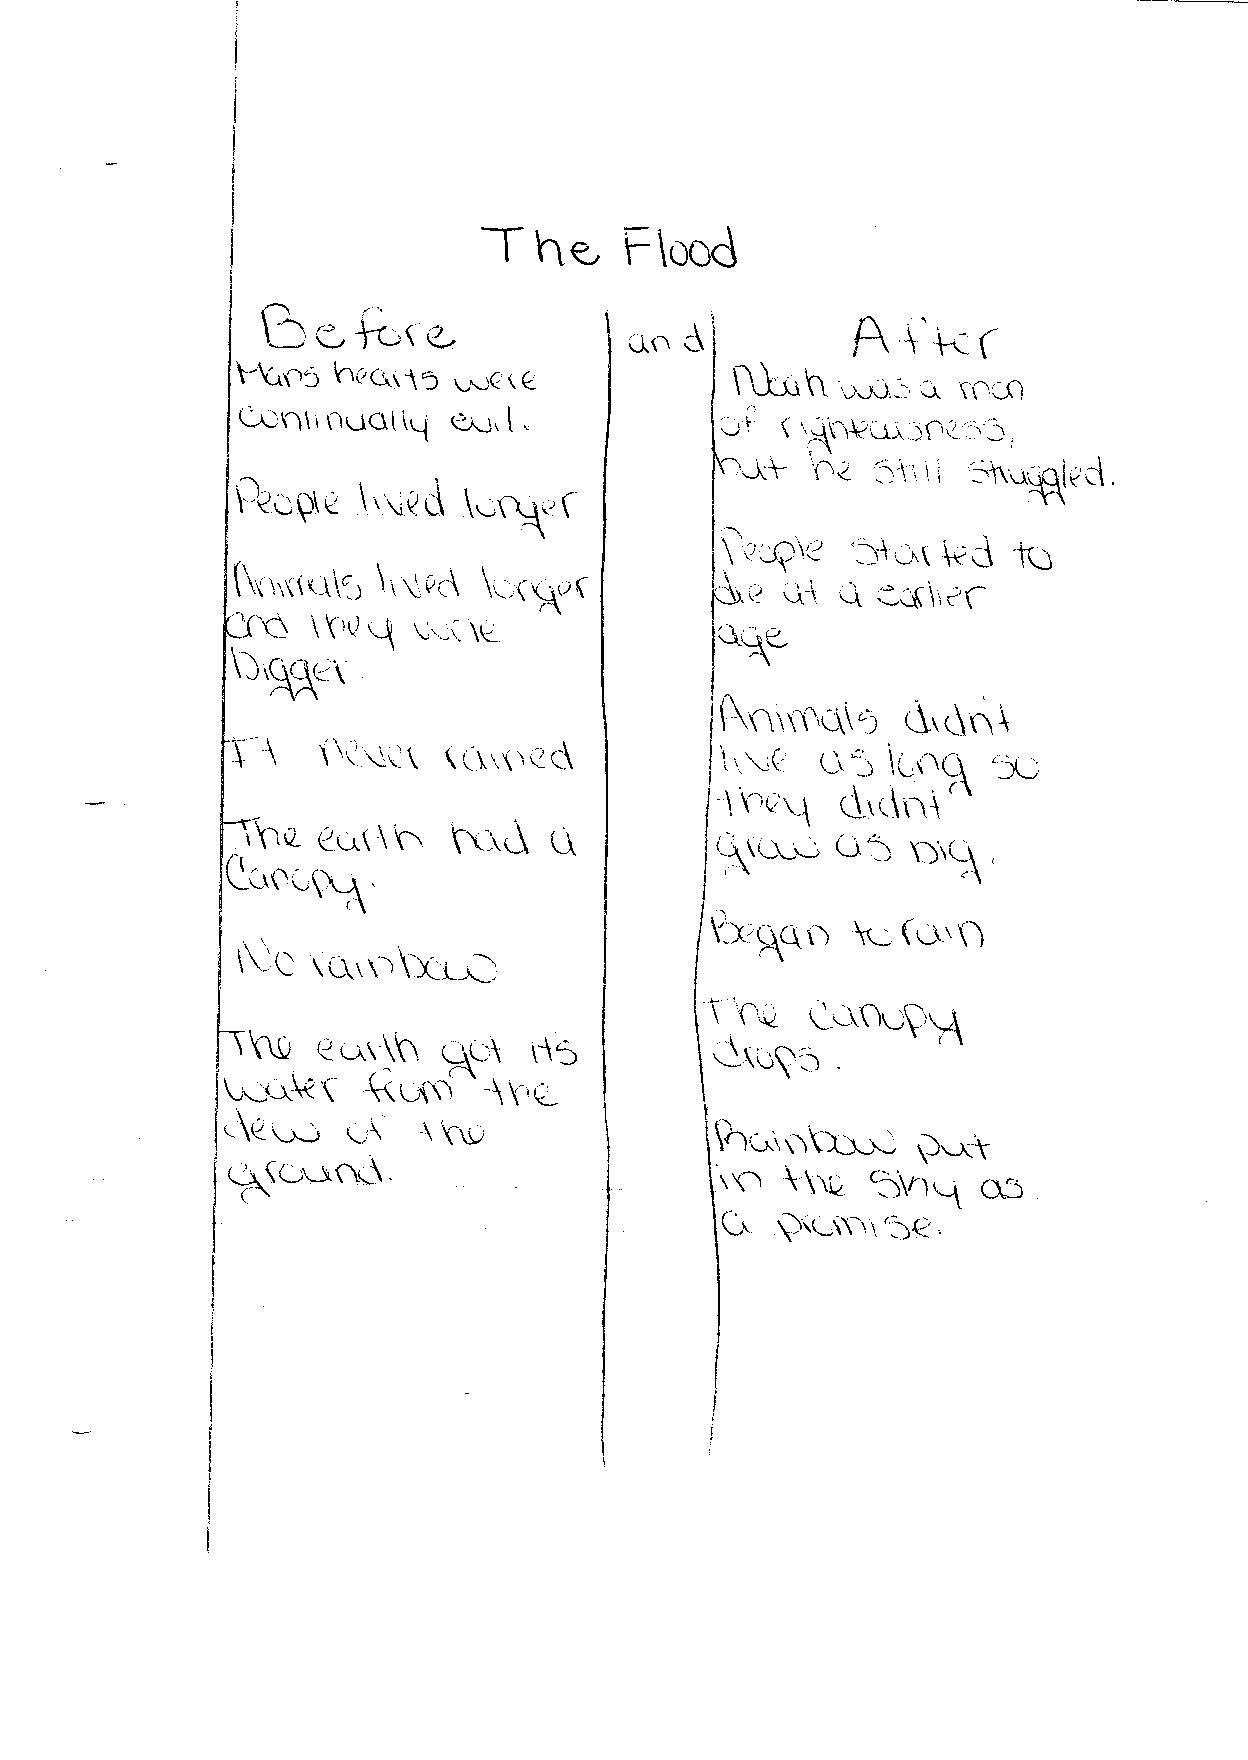 The Flood
Before and After
Mans hearts were
continually evil.
People lived longer
Animals lived longer
and they were
bigger.
It never rained
The earth had a
Canopy.
No rainbow
The earth got its
water from the
dew of the
ground.
Noah was a man
of righteousness,
but he still struggled.
People started to
die at a earlier
age
Animals didn't
live as long so
they didnt
grow as big.
Began to rain
The canopy
drops.
Rainbow put
in the sky as
a promise.